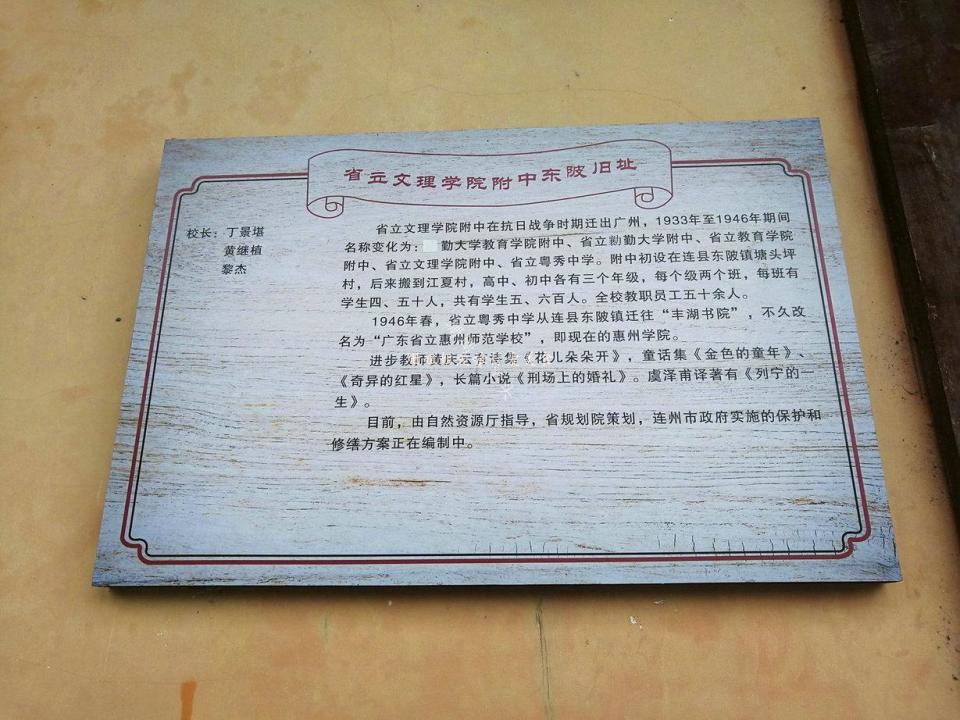 省立文理学院附中东陂旧址
校长：丁景堪
黄继植
黎杰
省立文理学院附中在抗日战争时期迁出广州，1933年至1946年期间
名称变化为： 勤大学教育学院附中、省立勷勤大学附中、省立教育学院
附中、省立文理学院附中、省立粤秀中学。附中初设在连县东陂镇塘头坪
村，后来搬到江夏村，高中、初中各有三个年级，每个级两个班，每班有
学生四、五十人，共有学生五、六百人。全校教职员工五十余人。
1946年春，省立粤秀中学从连县东陂镇迁往“丰湖书院”，不久改
名为“广东省立惠州师范学校”，即现在的惠州学院。
进步教师黄庆云有诗集《花儿朵朵开》，童话集《金色的童年》、
《奇异的红星》，长篇小说《刑场上的婚礼》。虞泽甫译著有《列宁的一
生》。
目前，由自然资源厅指导，省规划院策划，连州市政府实施的保护和
修缮方案正在编制中。